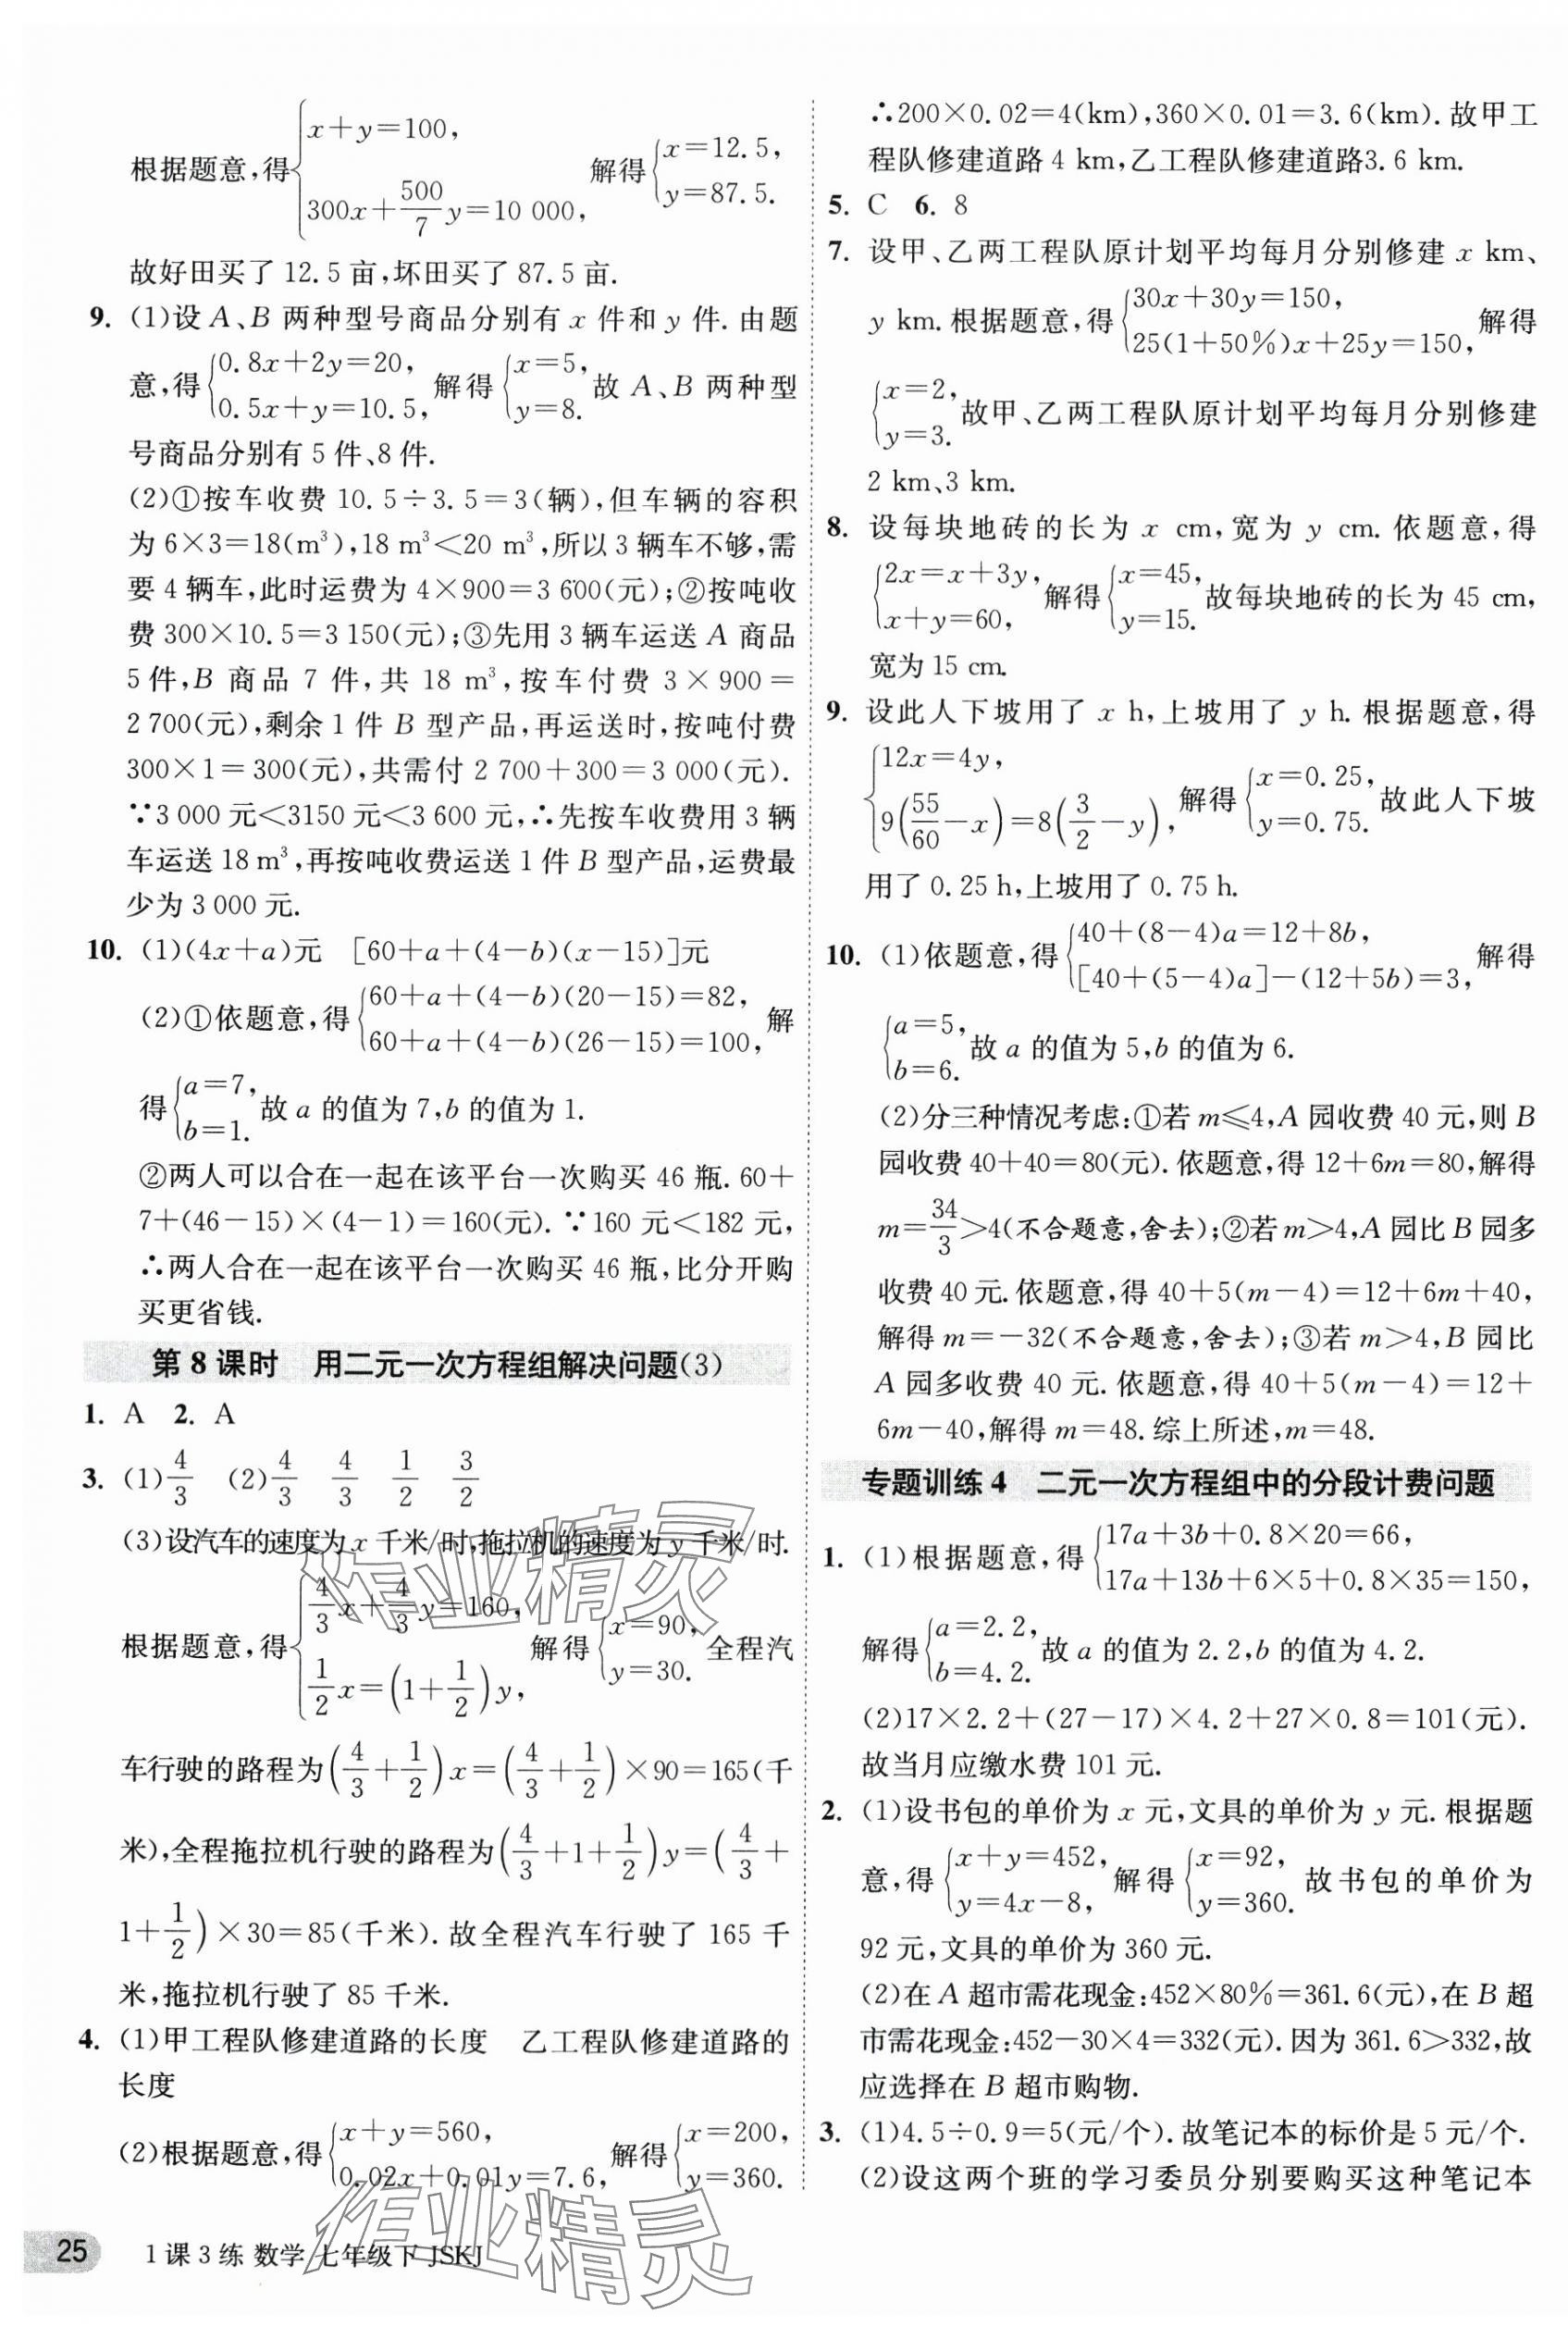 根据题意,得{x+y=100, 300x+500/7y=10 000, 解得{x=12.5, y=87.5.
故好田买了 12.5 亩,坏田买了 87.5 亩.
9. (1)设 A、B 两种型号商品分别有 x 件和 y 件. 由题
意,得{0.8x+2y=20, 0.5x+y=10.5, 解得{x=5, y=8. 故 A、B 两种型
号商品分别有 5 件、8 件.
(2)①按车收费 10.5÷3.5=3(辆),但车辆的容积
为 6×3=18(m³),18 m³<20 m³,所以 3 辆车不够,需
要 4 辆车,此时运费为 4×900=3 600(元);②按吨收
费 300×10.5=3 150(元);③先用 3 辆车运送 A 商品
5 件,B 商品 7 件,共 18 m³,按车付费 3×900=
2 700(元),剩余 1 件 B 型产品,再运送时,按吨付费
300×1=300(元),共需付 2 700+300=3 000(元).
∵3 000 元<3150 元<3 600 元,∴先按车收费用 3 辆
车运送 18 m³,再按吨收费运送 1 件 B 型产品,运费最
少为 3 000 元.
10. (1)(4x+a)元 [60+a+(4-b)(x-15)]元
(2)①依题意,得{60+a+(4-b)(20-15)=82, 60+a+(4-b)(26-15)=100, 解
得{a=7, b=1. 故 a 的值为 7,b 的值为 1.
②两人可以合在一起在该平台一次购买 46 瓶. 60+
7+(46-15)×(4-1)=160(元). ∵160 元<182 元,
∴两人合在一起在该平台一次购买 46 瓶,比分开购
买更省钱.
第 8 课时 用二元一次方程组解决问题(3)
1. A 2. A
3. (1)4/3 (2)4/3 4/3 1/2 3/2
(3)设汽车的速度为 x 千米/时,拖拉机的速度为 y 千米/时.
根据题意,得{4/3x+4/3y=160, 1/2x=(1+1/2)y, 解得{x=90, y=30. 全程汽
车行驶的路程为(4/3+1/2)x=(4/3+1/2)×90=165(千
米),全程拖拉机行驶的路程为(4/3+1+1/2)y=(4/3+
1+1/2)×30=85(千米). 故全程汽车行驶了 165 千
米,拖拉机行驶了 85 千米.
4. (1)甲工程队修建道路的长度 乙工程队修建道路的
长度
(2)根据题意,得{x+y=560, 0.02x+0.01y=7.6, 解得{x=200, y=360.
∴200×0.02=4(km),360×0.01=3.6(km). 故甲工
程队修建道路 4 km,乙工程队修建道路3.6 km.
5. C 6. 8
7. 设甲、乙两工程队原计划平均每月分别修建 x km、
y km. 根据题意,得{30x+30y=150, 25(1+50%)x+25y=150, 解得
{x=2, y=3. 故甲、乙两工程队原计划平均每月分别修建
2 km、3 km.
8. 设每块地砖的长为 x cm,宽为 y cm. 依题意,得
{2x=x+3y, x+y=60, 解得{x=45, y=15. 故每块地砖的长为 45 cm,
宽为 15 cm.
9. 设此人下坡用了 x h,上坡用了 y h. 根据题意,得
{12x=4y, 9(55/60-x)=8(3/2-y), 解得{x=0.25, y=0.75. 故此人下坡
用了 0.25 h,上坡用了 0.75 h.
10. (1)依题意,得{40+(8-4)a=12+8b, [40+(5-4)a]-(12+5b)=3, 解得
{a=5, b=6. 故 a 的值为 5,b 的值为 6.
(2)分三种情况考虑:①若 m≤4,A 园收费 40 元,则 B
园收费 40+40=80(元). 依题意,得 12+6m=80,解得
m=34/3>4(不合题意,舍去);②若 m>4,A 园比 B 园多
收费 40 元. 依题意,得 40+5(m-4)=12+6m+40,
解得 m=-32(不合题意,舍去);③若 m>4,B 园比
A 园多收费 40 元. 依题意,得 40+5(m-4)=12+
6m-40,解得 m=48. 综上所述,m=48.
专题训练 4 二元一次方程组中的分段计费问题
1. (1)根据题意,得{17a+3b+0.8×20=66, 17a+13b+6×5+0.8×35=150,
解得{a=2.2, b=4.2. 故 a 的值为 2.2,b 的值为 4.2.
(2)17×2.2+(27-17)×4.2+27×0.8=101(元).
故当月应缴水费 101 元.
2. (1)设书包的单价为 x 元,文具的单价为 y 元. 根据题
意,得{x+y=452, y=4x-8, 解得{x=92, y=360. 故书包的单价为
92 元,文具的单价为 360 元.
(2)在 A 超市需花现金:452×80%=361.6(元),在 B 超
市需花现金:452-30×4=332(元). 因为 361.6>332,故
应选择在 B 超市购物.
3. (1)4.5÷0.9=5(元/个). 故笔记本的标价是 5 元/个.
(2)设这两个班的学习委员分别要购买这种笔记本
25 1 课 3 练 数学 七年级下 JSKJ
作业精灵
作业精灵